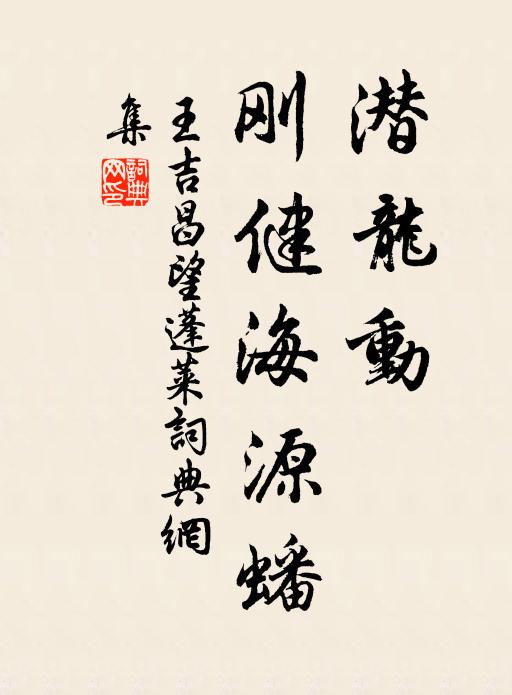 潜龍動
刚健海源蟠
王吉昌望蓬萊詞典網
集
詞典網印